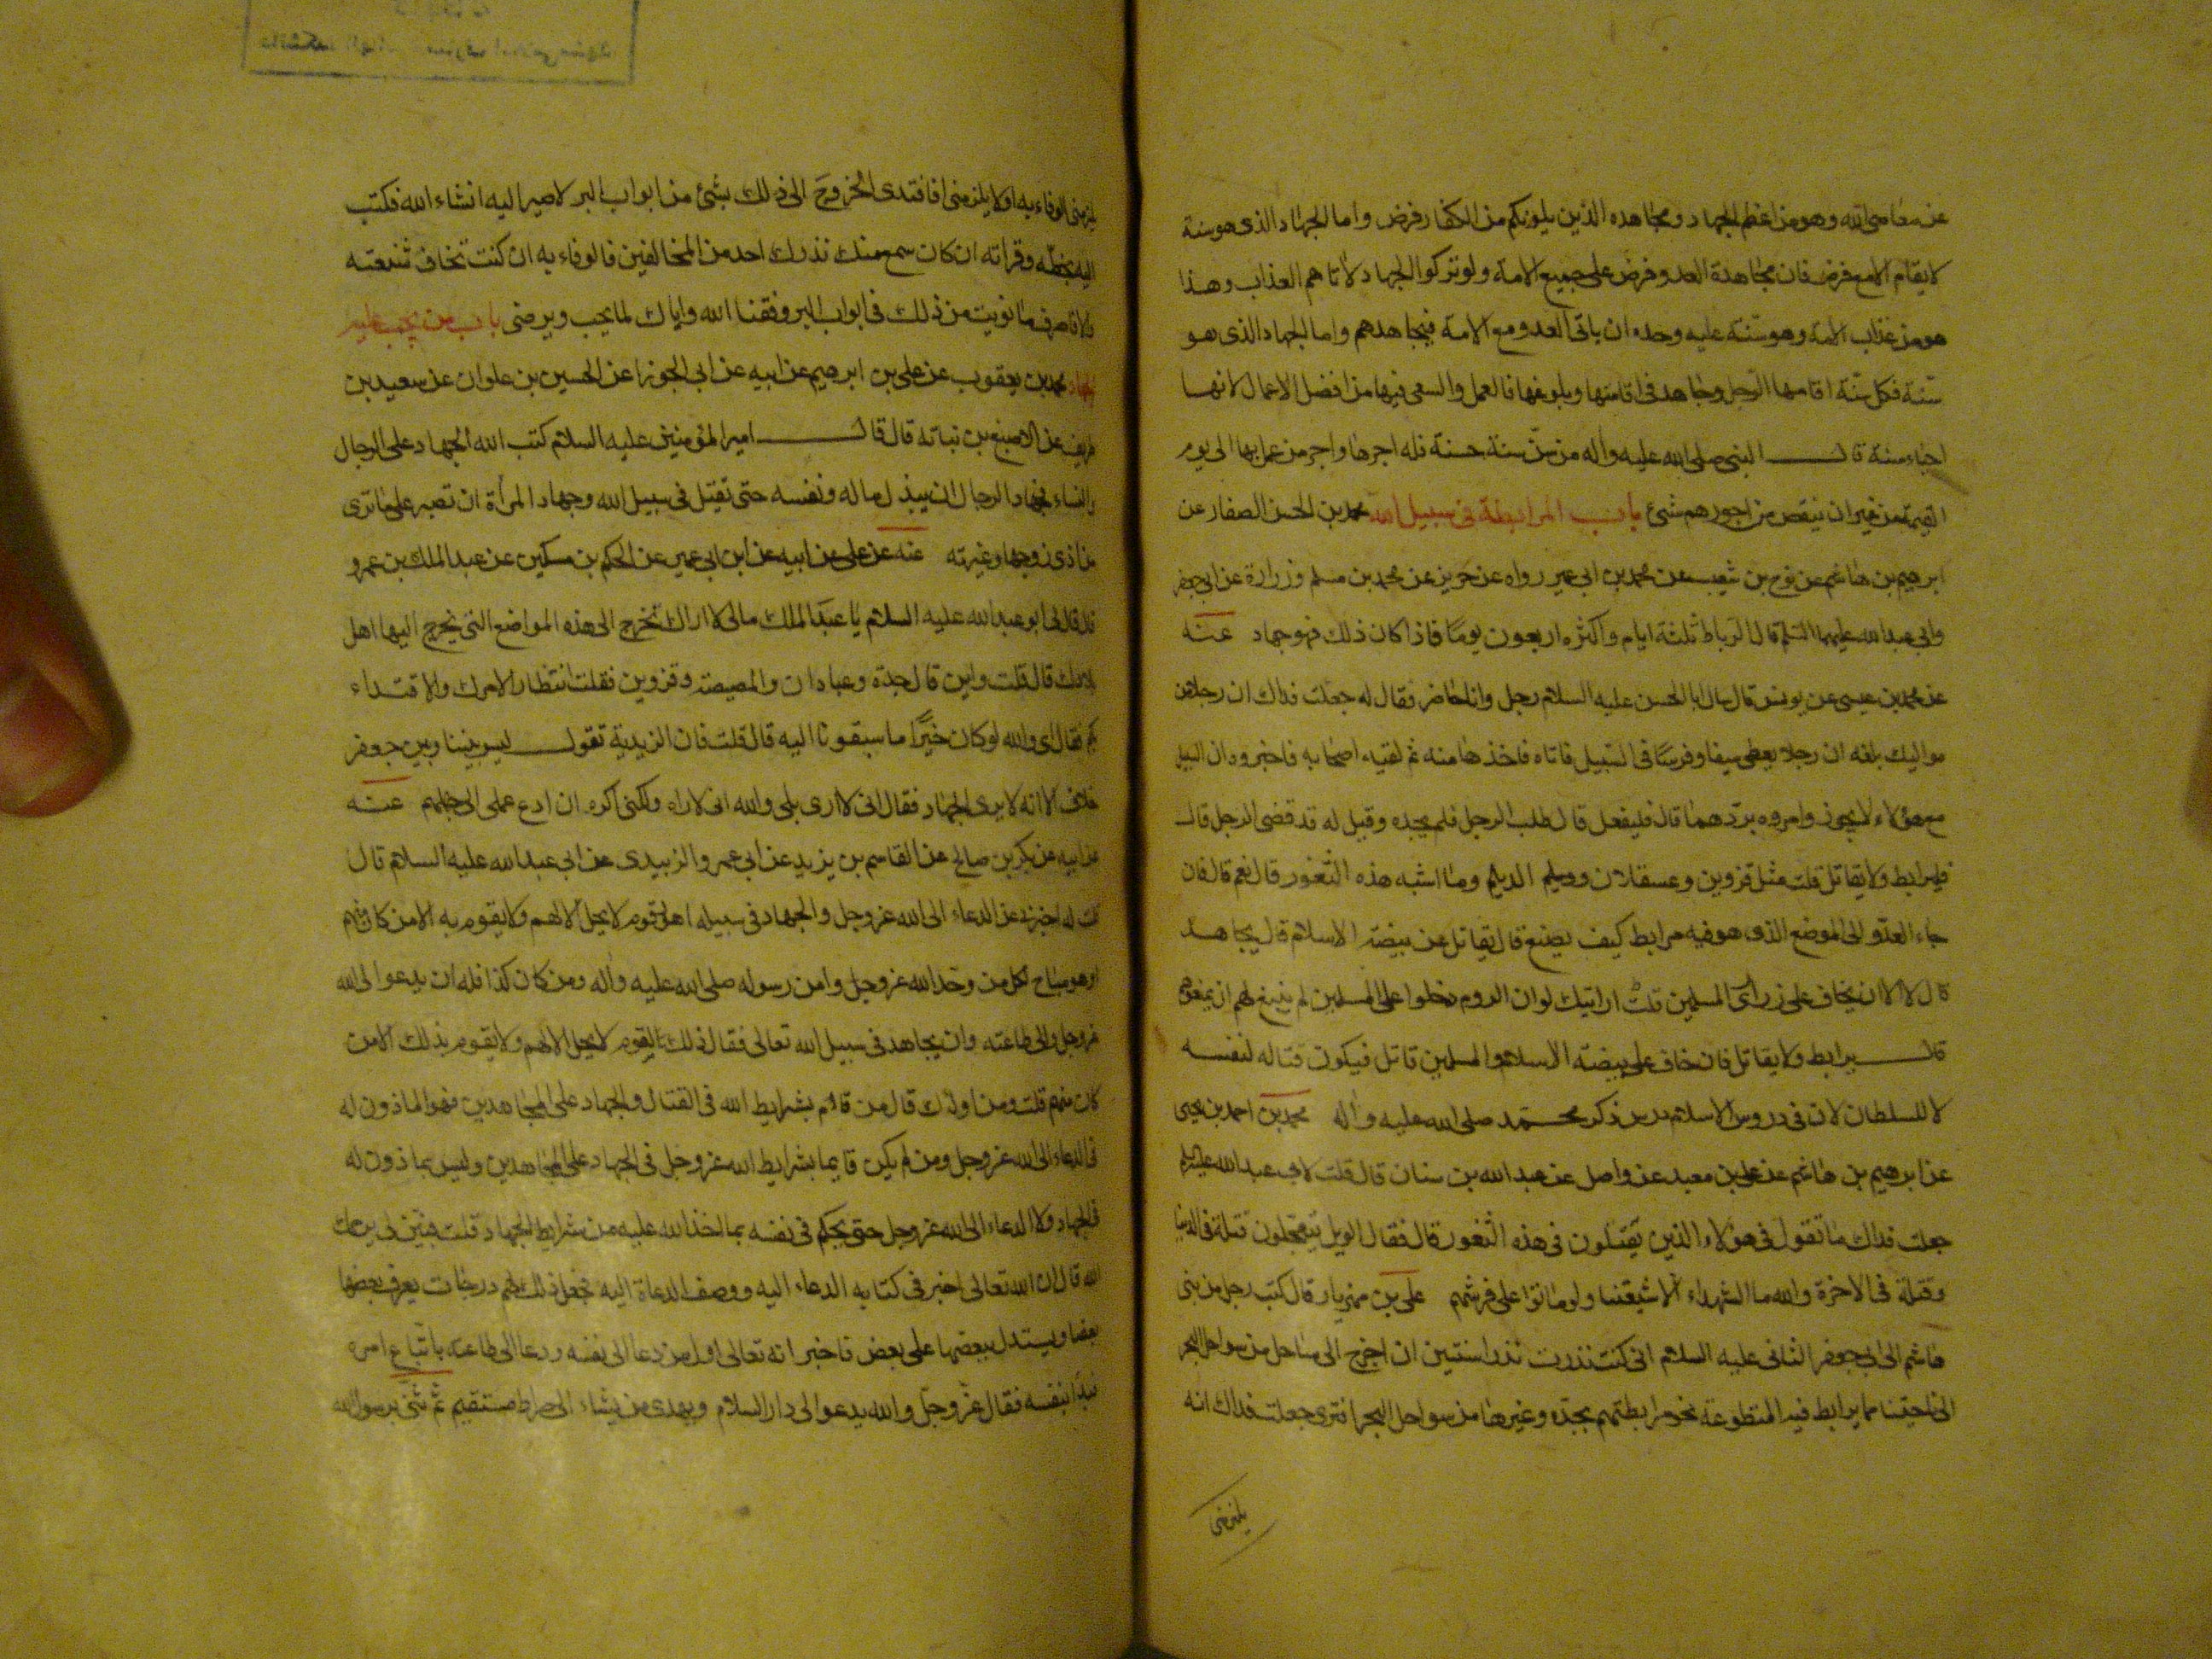 عن معاصى الله وهو من اعظم الجهاد ومجاهده الذين يلونكم من الكفار فرض واما الجهاد الذى هو سنة
لا يقام الا مع فرض فان مجاهدة العدو فرض على جميع الامة ولو تركوا الجهاد لاتاهم العذاب وهذا
هو من عذاب الامة وهو سنة عليه وحده ان ياتى العدو مع الامة فيجاهدهم واما الجهاد الذى هو
سنة فكل سنة اقامها الرجل وجاهد فى اقامتها وبلوغها فالعمل والسعى فيها من افضل الاعمال لانها
احياء سنة قال النبى صلى الله عليه واله من سن سنة حسنة فله اجرها واجر من عمل بها الى يوم
القيمة من غير ان ينقص من اجورهم شئ باب المرابطة فى سبيل الله محمد بن الحسن الصفار عن
ابرهيم بن هاشم عن نوح بن شعيب عن محمد بن ابى عمير رواه عن حريز عن محمد بن مسلم وزرارة عن ابى جعفر
وابى عبد الله عليهما السلم قال الرباط ثلثة ايام واكثره اربعون يوما فاذا كان ذلك فهو جهاد عنه
عن محمد بن عيسى عن يونس قال سال ابا الحسن عليه السلام رجل وانا حاضر فقال له جعلت فداك ان رجلا من
مواليك بلغه ان رجلا يعطى سيفا وفرسا فى السبيل فاتاه فاخذهما منه ثم لقيه اصحابه فاخبروه ان السبيل
مع هؤلاء لا يجوز وامروه بردهما قال فليفعل قال طلب الرجل فلم يجده وقيل له قد قضى الرجل قال
فليرابط ولا يقاتل قلت مثل قزوين وعسقلان وديلم وما اشبه هذه الثغور قال نعم قال فان
جاء العدو الى الموضع الذى هو فيه مرابط كيف يصنع قال يقاتل عن بيضة الاسلام قال يجاهد
قال لا الا ان يخاف على ذرارى المسلمين قلت ارايتك لو ان الروم دخلوا على المسلمين لم ينبغ لهم ان يمنعوهم
قال يرابط ولا يقاتل فان خاف على بيضة الاسلام والمسلمين قاتل فيكون قتاله لنفسه
لا للسلطان لان فى دروس الاسلام دروس ذكر محمد صلى الله عليه واله محمد بن احمد بن يحيى
عن ابرهيم بن هاشم عن على بن معبد عن واصل عن عبد الله بن سنان قال قلت لابى عبد الله عليه السلام
جعلت فداك ما تقول فى هؤلاء الذين يقتلون فى هذه الثغور قال فقال الويل يتعجلون قتلة فى الدنيا
وقتلة فى الاخرة والله ما الشهداء الا شيعتنا ولو ماتوا على فرشهم على بن مهزيار قال كتب رجل من بنى
هاشم الى ابى جعفر الثانى عليه السلام انى كنت نذرت نذرا منذ سنين ان اخرج الى ساحل من سواحل البحر
الى ناحيتنا مما يرابط فيه المتطوعة نحو مرابطتهم بجدة وغيرها من سواحل البحر افترى جعلت فداك انه
يلزمنى
يلزمنى الوفاء به او لا يلزمنى افافتدى الخروج الى ذلك بشئ من ابواب البر لاصير اليه انشاء الله فكتب
اليه بخطه وقراته ان كان سمع منك نذرك احد من المخالفين فالوفاء به ان كنت تخاف شنعته
والا فاصرف ما نويت من ذلك فى ابواب البر وفقنا الله واياك لما يحب ويرضى باب من يجب عليه
الجهاد محمد بن يعقوب عن على بن ابرهيم عن ابيه عن ابى الجوزا عن الحسين بن علوان عن سعيد بن
طريف عن الاصبغ بن نباته قال قال امير المؤمنين عليه السلام كتب الله الجهاد على الرجال
والنساء فجهاد الرجال ان يبذل ماله ونفسه حتى يقتل فى سبيل الله وجهاد المرأة ان تصبر على ما ترى
من اذى زوجها وغيرته عنه عن على عن ابيه عن ابن ابى عمير عن الحكم بن مسكين عن عبد الملك بن عمرو
قال قال لى ابو عبد الله عليه السلام يا عبد الملك مالى لا اراك تخرج الى هذه المواضع التى يخرج اليها اهل
بلادك قال قلت واين قال جدة وعبادان والمصيصة وقزوين فقلت انتظارا لامرك والاقتداء
بكم فقال اى والله لو كان خيرا ما سبقونا اليه قال قلت فان الزيدية تقول ليس بيننا وبين جعفر
خلاف الا انه لا يرى الجهاد فقال انى لا ارى بلى والله انى لاراه ولكنى اكره ان ادع عملى الى جهلهم عنه
عن ابيه عن بكر بن صالح عن القاسم بن يزيد عن ابى عمرو الزبيدى عن ابى عبد الله عليه السلام قال
قلت له اخبرنى عن الدعاء الى الله عز وجل والجهاد فى سبيله اهو لقوم لا يحل الا لهم ولا يقوم به الا من كان منهم
ام هو مباح لكل من وحد الله عز وجل وامن رسوله صلى الله عليه واله ومن كان كذا فله ان يدعو الى الله
عز وجل والى طاعته وان يجاهد فى سبيل الله تعالى فقال ذلك لقوم لا يحل الا لهم ولا يقوم بذلك الا من
كان منهم قلت ومن اولئك قال من قام بشرايط الله فى القتال والجهاد على المجاهدين فهو الماذون له
فى الدعاء الى الله عز وجل ومن لم يكن قايما بشرايط الله عز وجل فى الجهاد على المجاهدين وليس بماذون له
فى الجهاد ولا الدعاء الى الله عز وجل حتى يحكم فى نفسه بما اخذ الله عليه من شرايط الجهاد قلت فبين لى يرحمك
الله قال ان الله تعالى اخبر فى كتابه الدعاء اليه ووصف الدعاة اليه فجعل ذلك لهم درجات يعرف بعضها
بعضا ويستدل ببعضها على بعض فاخبر انه تعالى اول من دعا الى نفسه ودعا الى طاعته باتباع امره
فبدا بنفسه فقال عز وجل والله يدعو الى دار السلام ويهدى من يشاء الى صراط مستقيم ثم ثنى برسول الله